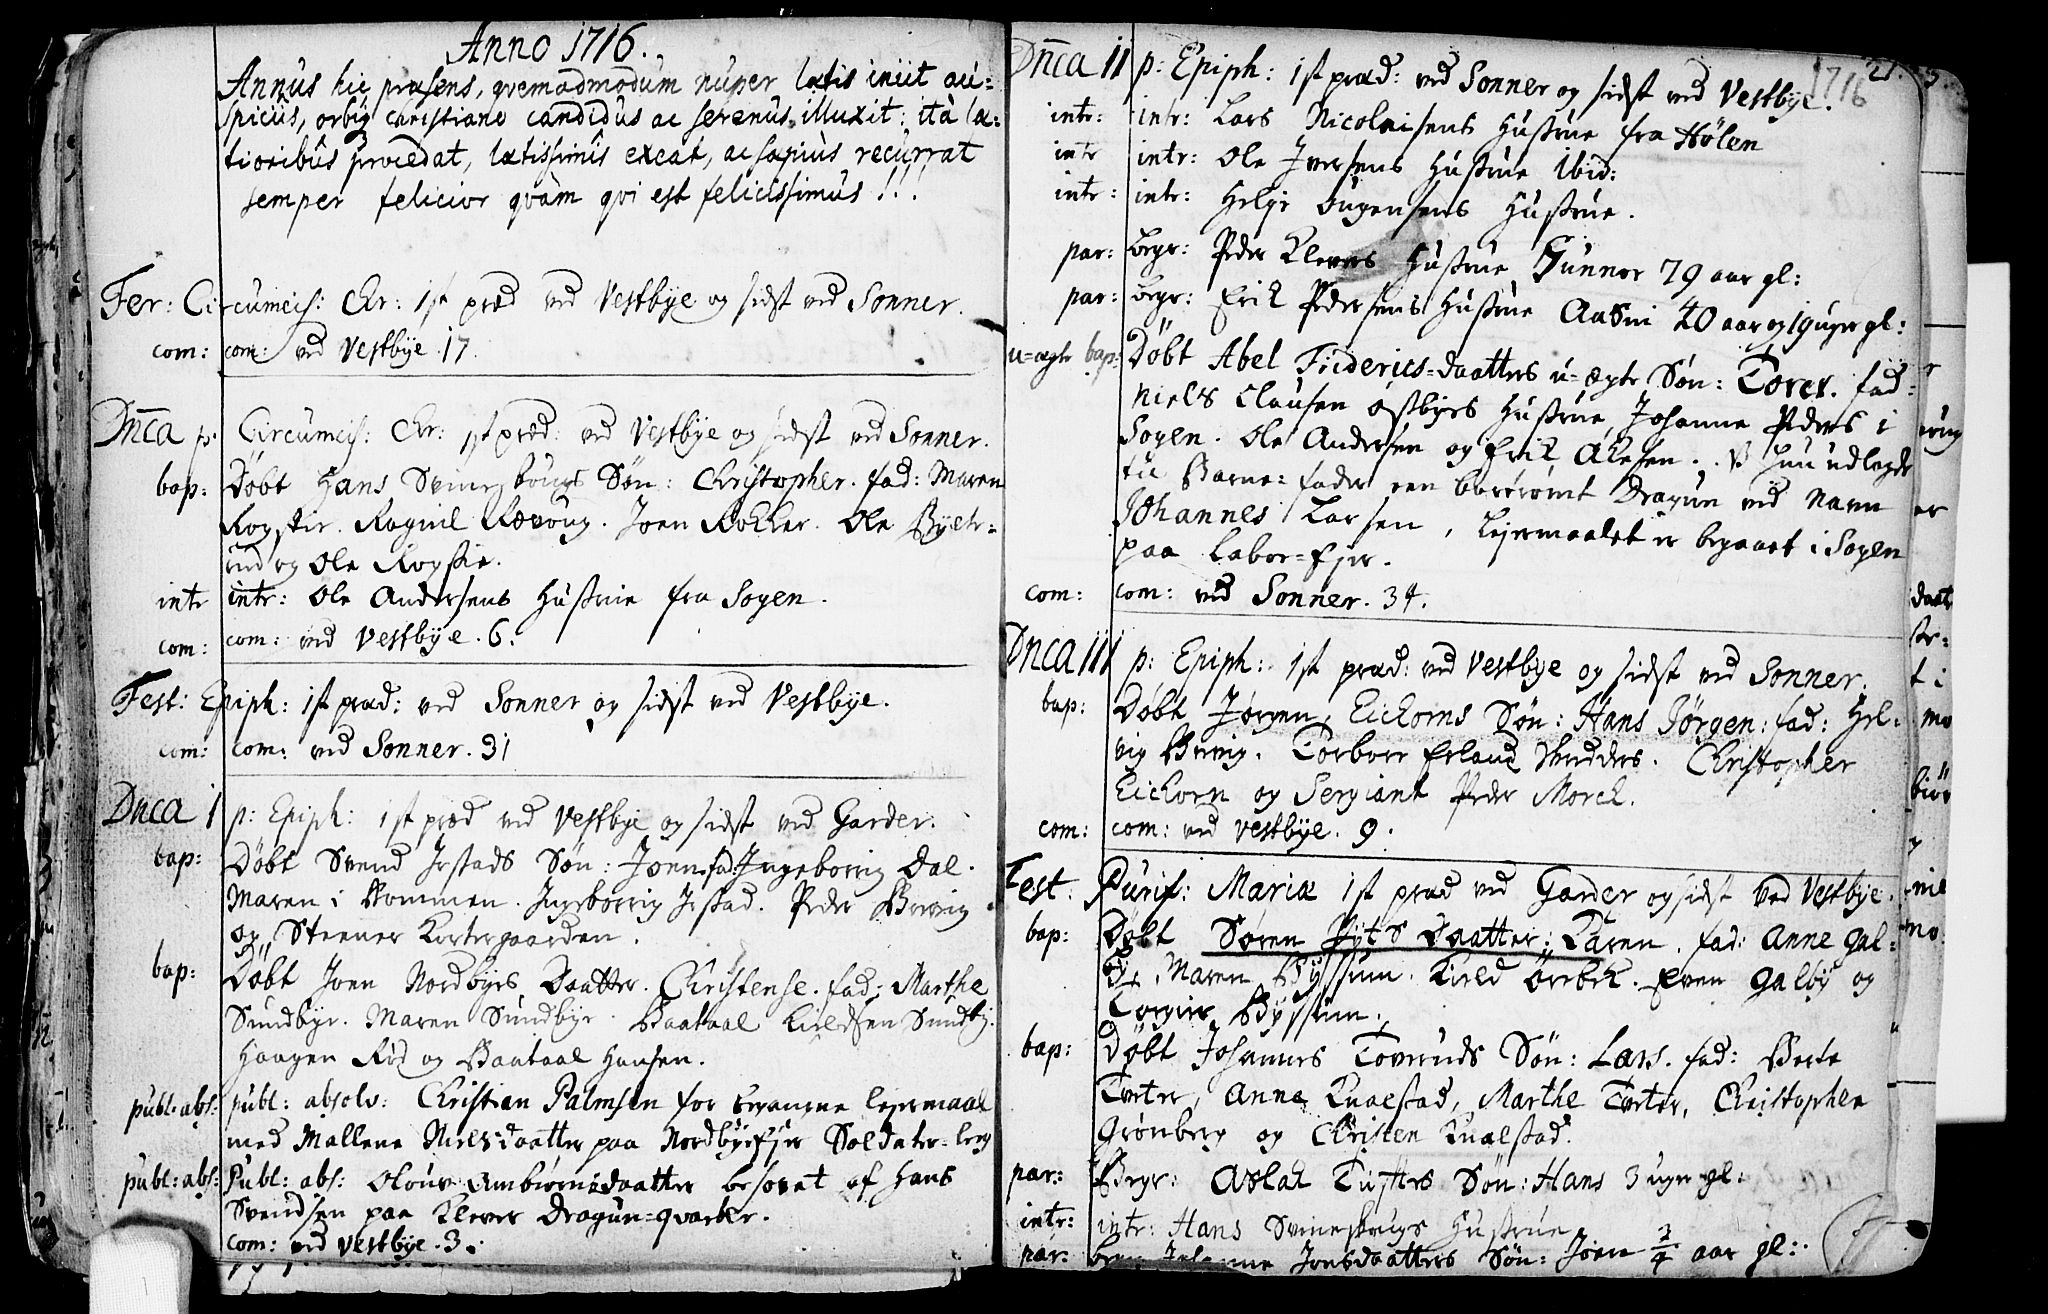 Anno 1716.
Annus hic præsens, qvemadmodum nuper lætis iniit au=
spiciis, orbiq christiano candidus ac serenus illuxit: ità læ=
tioribus procedat, lætissimis exeat, ac sæpius recurrat
semper felicior qvàm qvi est felicissimus!!!
Fer: Circumcis: Chr: 1st præd ved Vestbÿe og sidst ved Sonner.
com: com: ved Vestbÿe 17.
Dnca p. Circumcis: Chr: 1st præd: ved Vestbÿe og sidst ved Sonner.
bap: Døbt Hans Svineskougs Søn: Christopher. fad: Maren
Rogstie. Ragnil Ræuoug. Joen Rokker. Ole Byetr=
rud og Ole Rogstie.
intr intr: Ole Andersens Hustrue fra Sogen.
com: com: ved Vestbÿe. 6.
Fest: Epiph: 1st præd: ved Sonner og sidst ved Vestbÿe.
com: com: ved Sonner. 31
Dnca i p: Epiph: 1st præd ved Vestbÿe og sidst ved Garder.
bap: Døbt Svend Jestads Søn: Joen. fad: Ingeborrig Dal.
Maren i Kommen. Ingeborrig Jestad. Peder Berrig
og Steener Kortergaarden.
bap: Døbt Joen Nordbyes Daatter. Christense. fad: Marthe
Sundbye. Maren Sundbye. Baataal Kieldsen Sundbÿ.
Haagen Rød og Baataal Hansen.
publ: abs: publ: absolv: Christian Palmsen for begangne lejermaal
med Mallene Nielsdaatter paa Nordbyeejer Soldater=leeg
publ: abs: Publ: abs: Olouv Ambiørnsdaatter besovet af Hans
Svendsen paa Klever Dragun=qvarter.
com: ved Vestbÿe. 3.
21.
1716
Dnca ii p: Epiph: 1st præd: ved Sonner og sidst ved Vestbÿe.
intr: intr: Lars Nicolaisens Hustrue fra Hølen
intr intr: Ole Iversens Hustrue ibid:
intr: intr: Helje Hustrue.
par: begr: Peder Klevers Hustrue Gunnor 79 aar gl:
par: begr: Erik Pedersens Hustrue Aasni 40 aar og 19 uger gl:
u=ægte bap: Døbt Abel Friderics=daatters u=ægte Søn: Torer. fad:
Niels Clausen Østbyes Hustrue, Johanne Peders i
Sogen. Ole Andersen og Erik Olesen. Hun udlagde
til Barne=fader een berømt Dragun ved Navn
Johannes Larsen, Lejermaalet er begaaet i Sogen
paa Labor=Ejer.
com: com: ved Sonner. 34.
Dnca iii p: Epiph: 1st præd: ved Vestbÿe og sidst ved Sonner.
bap: Døbt Jørgen Eickorns Søn: Hans Jørgen: fad: Hel=
vig Berrig. Torborr Erland Christopher
Eickorn og Sergiant Peder Morck.
com: com: ved Vestbÿe. 9.
Fest: Purif: Mariæ 1st præd ved Garder og sidst ved Vestbÿe.
bap: Døbt Søren Pyts Daatter: Karen. fad: Anne Gal=
bÿ, Maren Byssum. Kield Orebek. Even Galbÿ og
Torgier Byssum.
bap: Døbt Johannes Toveruds Søn: Lars. fad: Berte
Tveter, Anne Kualstad, Marthe Tveter, Christopher
Grønberg og Christen Kualstad.
par: Begr: Aslak Tufters Søn: Hans 3 uger gl:
intr: intr: Hans Svineskougs Hustrue
par: begr: Johanne Joensdaatters Søn: Joen 3/4 aar gl: